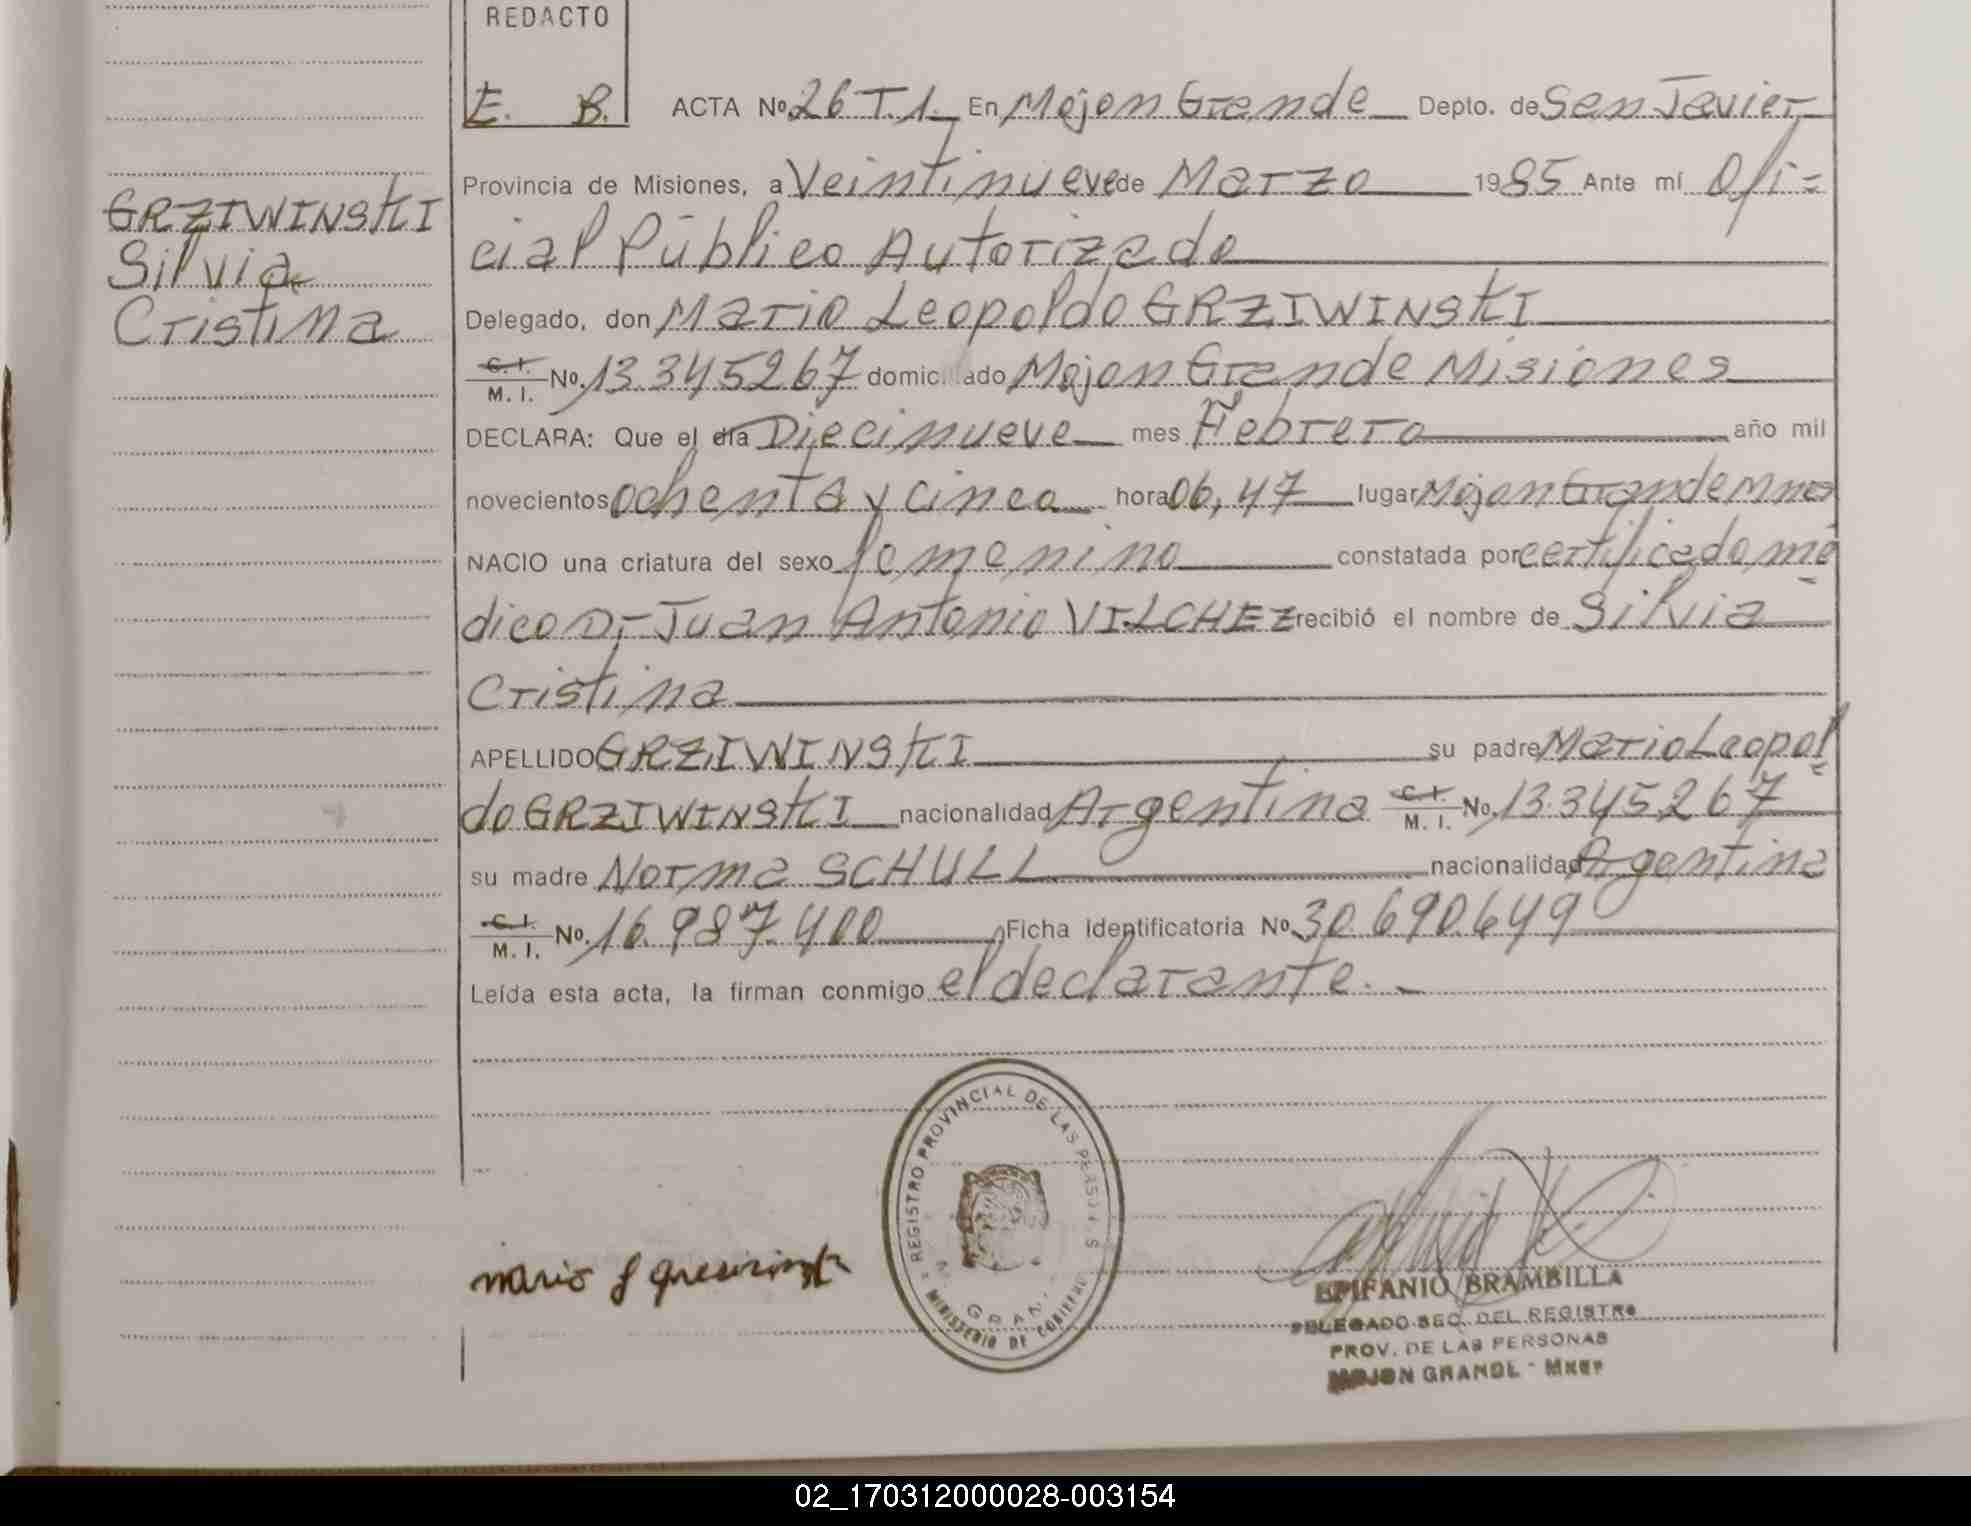 REDACTO
E. B.
ACTA Nº 26 T.1. En Mojon Grande Depto. de San Javier
Provincia de Misiones, a Veintinueve de Marzo 1985 Ante mí Ofi=
cial Público Autorizado
GRZIWINSKI
Silvia
Cristina
Delegado, don Mario Leopoldo GRZIWINSKI
C. I.
M. I. No. 13.345267 domiciliado Mojon Grande Misiones
DECLARA: Que el día Diecinueve mes Febrero año mil
novecientos ochenta y cinco hora 06,47 lugar Mojon Grande Mnes
NACIO una criatura del sexo femenino constatada por certificado mé
dico Dr Juan Antonio VILCHEZ recibió el nombre de Silvia
Cristina
APELLIDO GRZIWINSKI su padre Mario Leopol
do GRZIWINSKI nacionalidad Argentina C. I. M. I. No. 13.345267
su madre Norma SCHULL nacionalidad Argentina
C. I.
M. I. No. 16.987.400 Ficha Identificatoria No. 30.690.649
Leída esta acta, la firman conmigo el declarante.-
REGISTRO PROVINCIAL DE LAS PERSONAS
MINISTERIO DE GOBIERNO
EPIFANIO BRAMBILLA
DELEGADO SEC. DEL REGISTRO
PROV. DE LAS PERSONAS
MOJON GRANDE - Mnes
02_170312000028-003154